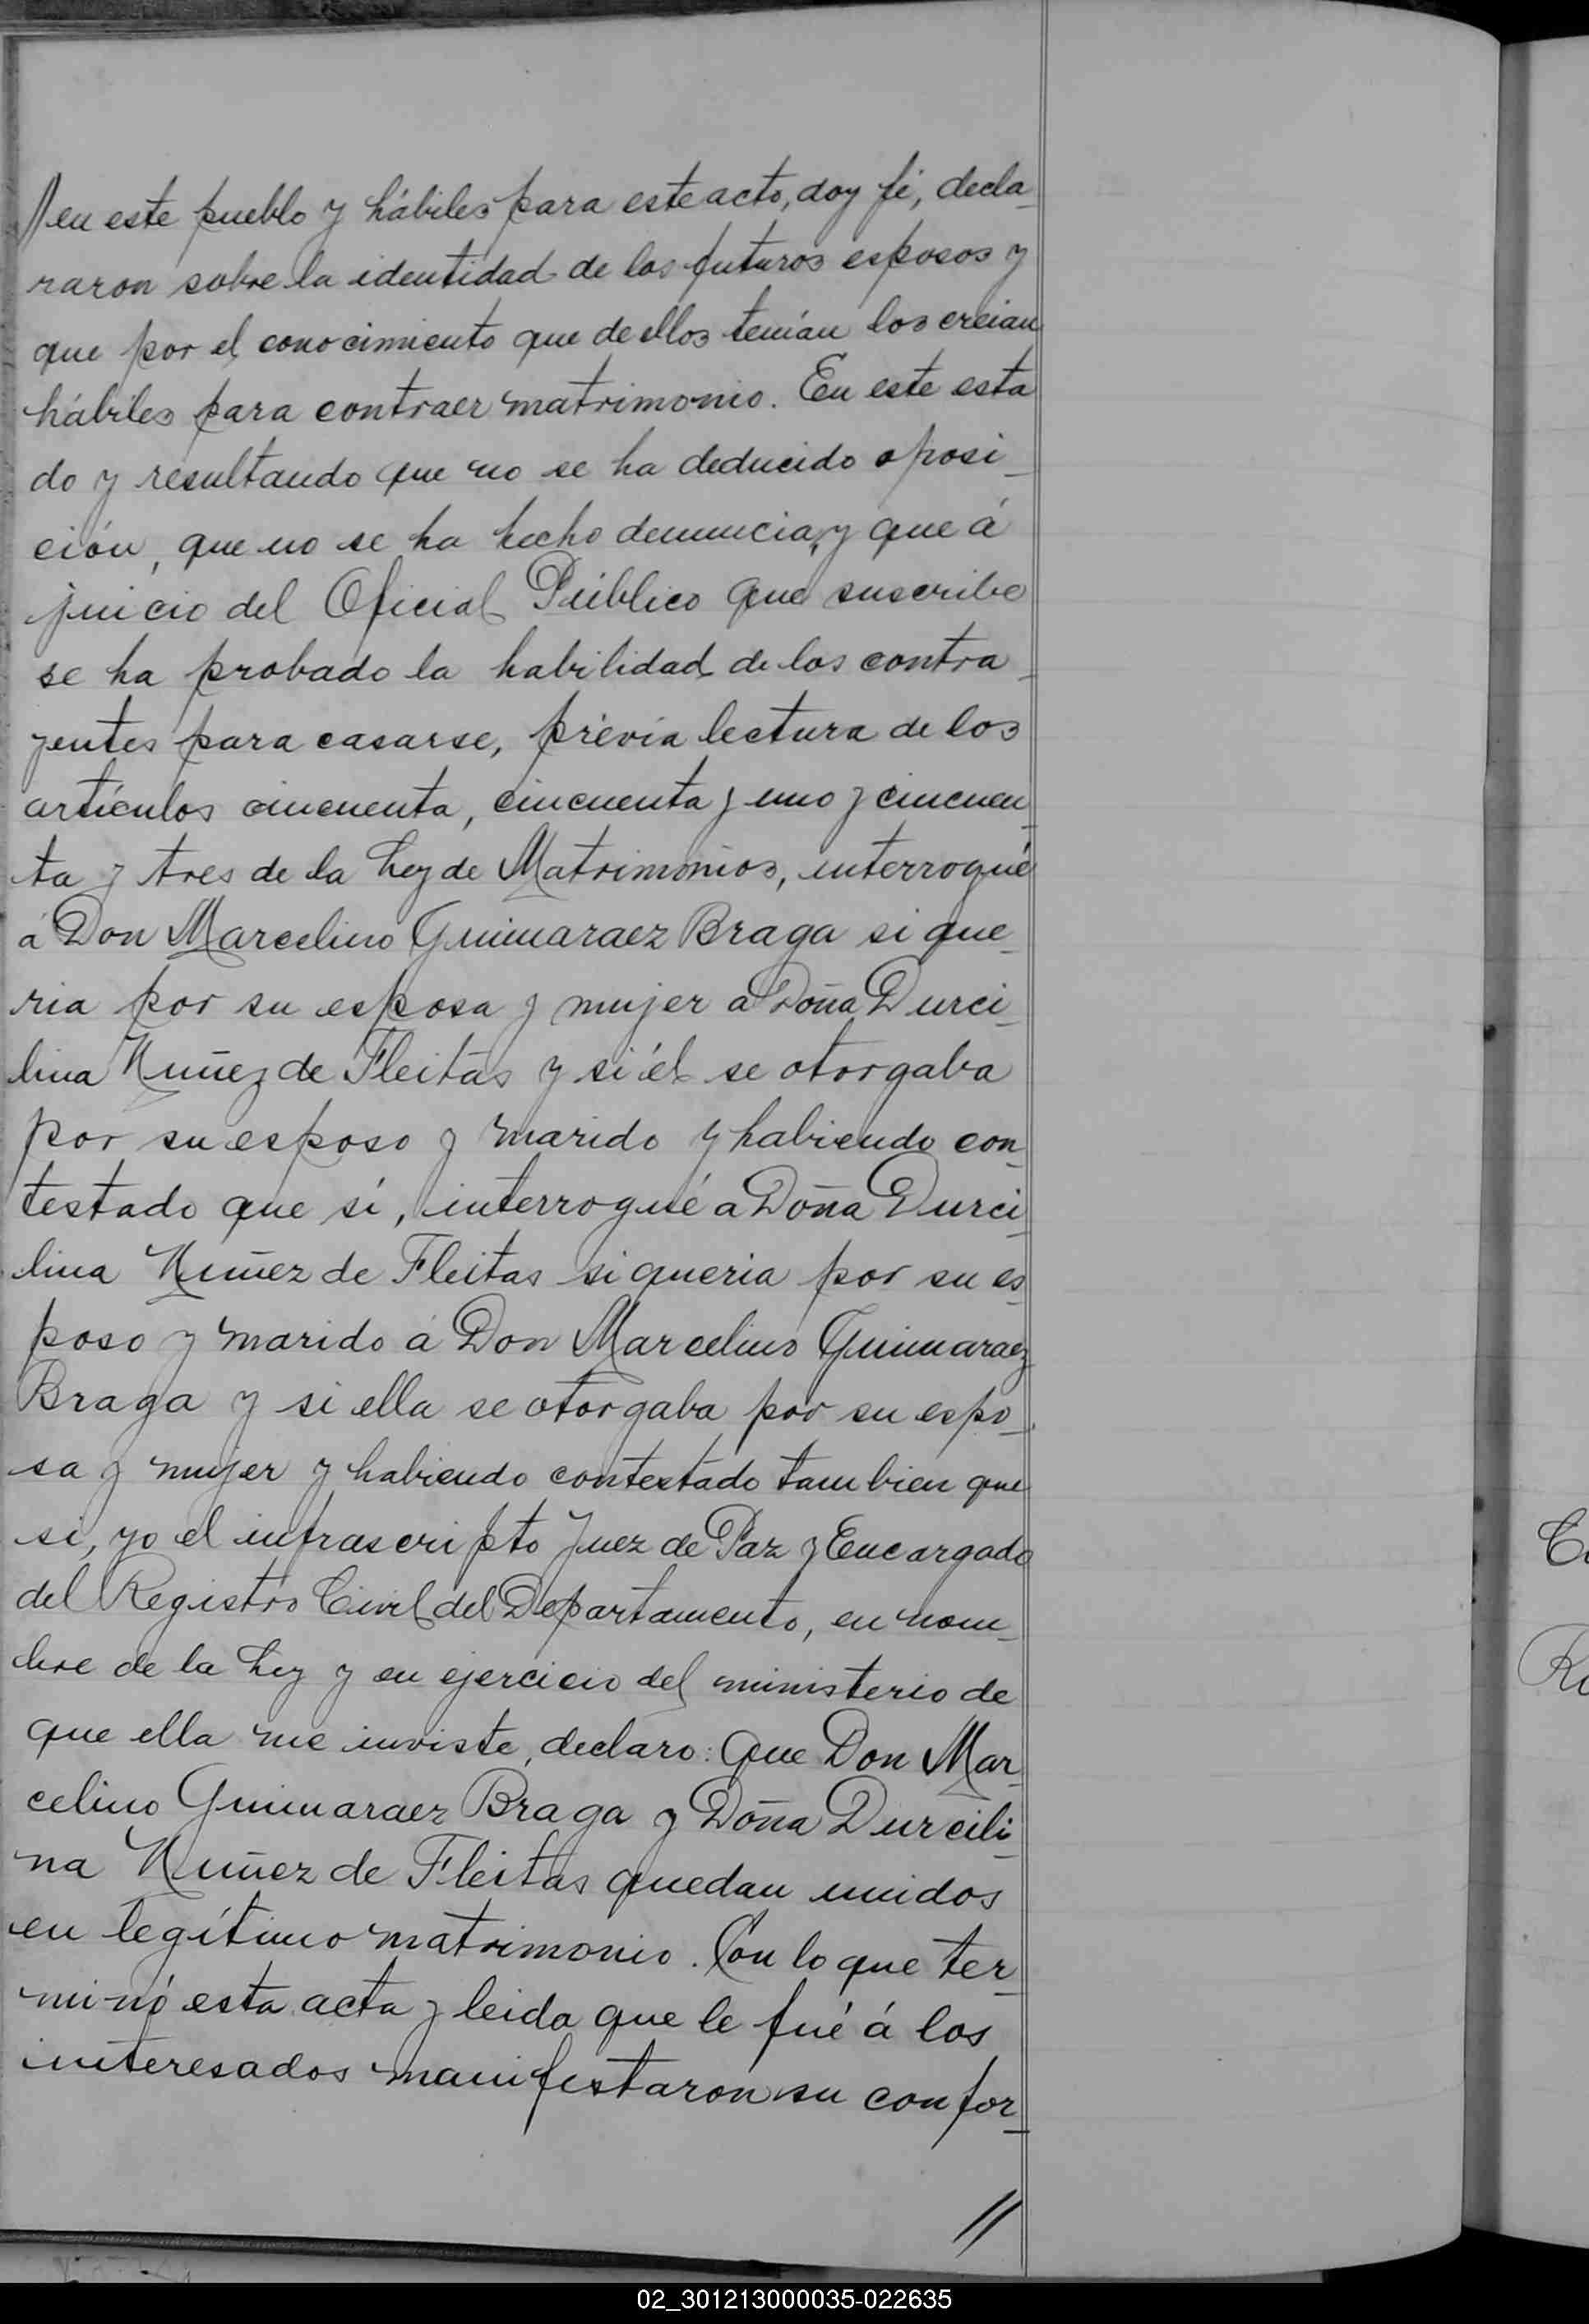 // en este pueblo y hábiles para este acto, doy fé, decla-
raron sobre la identidad de los futuros esposos y
que por el conocimiento que de ellos tenían los creian
hábiles para contraer matrimonio. En este esta
do y resultando que no se ha deducido oposi-
ción, que no se ha hecho denuncia, y que á
juicio del Oficial Público que suscribe
se ha probado la habilidad de los contra-
yentes para casarse, prévia lectura de los
artículos cincuenta, cincuenta y uno y cincuen-
ta y tres de la Ley de Matrimonios, interrogué
á Don Marcelino Guimaraez Braga si que-
ria por su esposa y mujer a Doña Durci-
lina Nuñez de Fleitas y si él se otorgaba
por su esposo y marido y habiendo con-
testado que sí, interrogué a Doña Durci-
lina Nuñez de Fleitas si queria por su es-
poso y marido á Don Marcelino Guimaraez
Braga y si ella se otorgaba por su espo-
sa y mujer y habiendo contestado tambien que
si, yo el infrascripto Juez de Paz y Encargado
del Registro Civil del Departamento, en nom-
bre de la Ley y en ejercicio del ministerio de
que ella me inviste, declaro: Que Don Mar-
celino Guimaraez Braga y Doña Durcili-
na Nuñez de Fleitas quedan unidos
en legítimo matrimonio. Con lo que ter-
minó esta acta y leida que le fué á los
interesados manifestaron su confor-
//
02_301213000035-022635